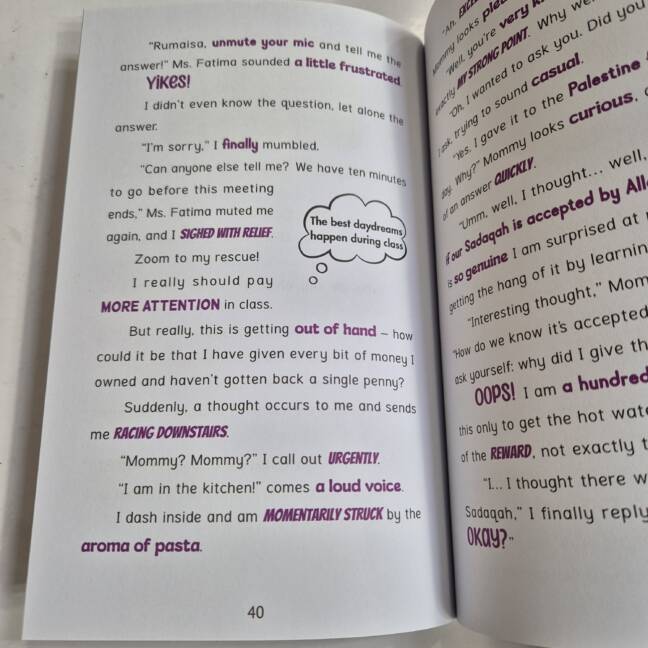 "Rumaisa, unmute your mic and tell me the
answer!" Ms. Fatima sounded a little frustrated.
Yikes!
I didn't even know the question, let alone the
answer.
"I'm sorry," I finally mumbled.
"Can anyone else tell me? We have ten minutes
to go before this meeting
ends," Ms. Fatima muted me
again, and I SIGHED WITH RELIEF.
Zoom to my rescue!
I really should pay
MORE ATTENTION in class.
The best daydreams
happen during class
But really, this is getting out of hand – how
could it be that I have given every bit of money I
owned and haven't gotten back a single penny?
Suddenly, a thought occurs to me and sends
me RACING DOWNSTAIRS.
"Mommy? Mommy?" I call out URGENTLY.
"I am in the kitchen!" comes a loud voice.
I dash inside and am MOMENTARILY STRUCK by the
aroma of pasta.
40
"Ah,
Mommy looks
"Well, you're very
exactly MY STRONG POINT. Why
"Oh, I wanted to ask you. Did you
I ask, trying to sound casual.
"Yes. I gave it to the Palestine
day. Why?" Mommy looks curious,
of an answer QUICKLY.
"Umm, well, I thought... well,
if our Sadaqah is accepted by
is so genuine I am surprised at
getting the hang of it by
"Interesting thought,"
"How do we know it's accepted
ask yourself: why did I give
OOPS! I am a hundred
this only to get the hot
of the REWARD, not exactly
"I... I thought there
Sadaqah," I finally reply
Okay?"